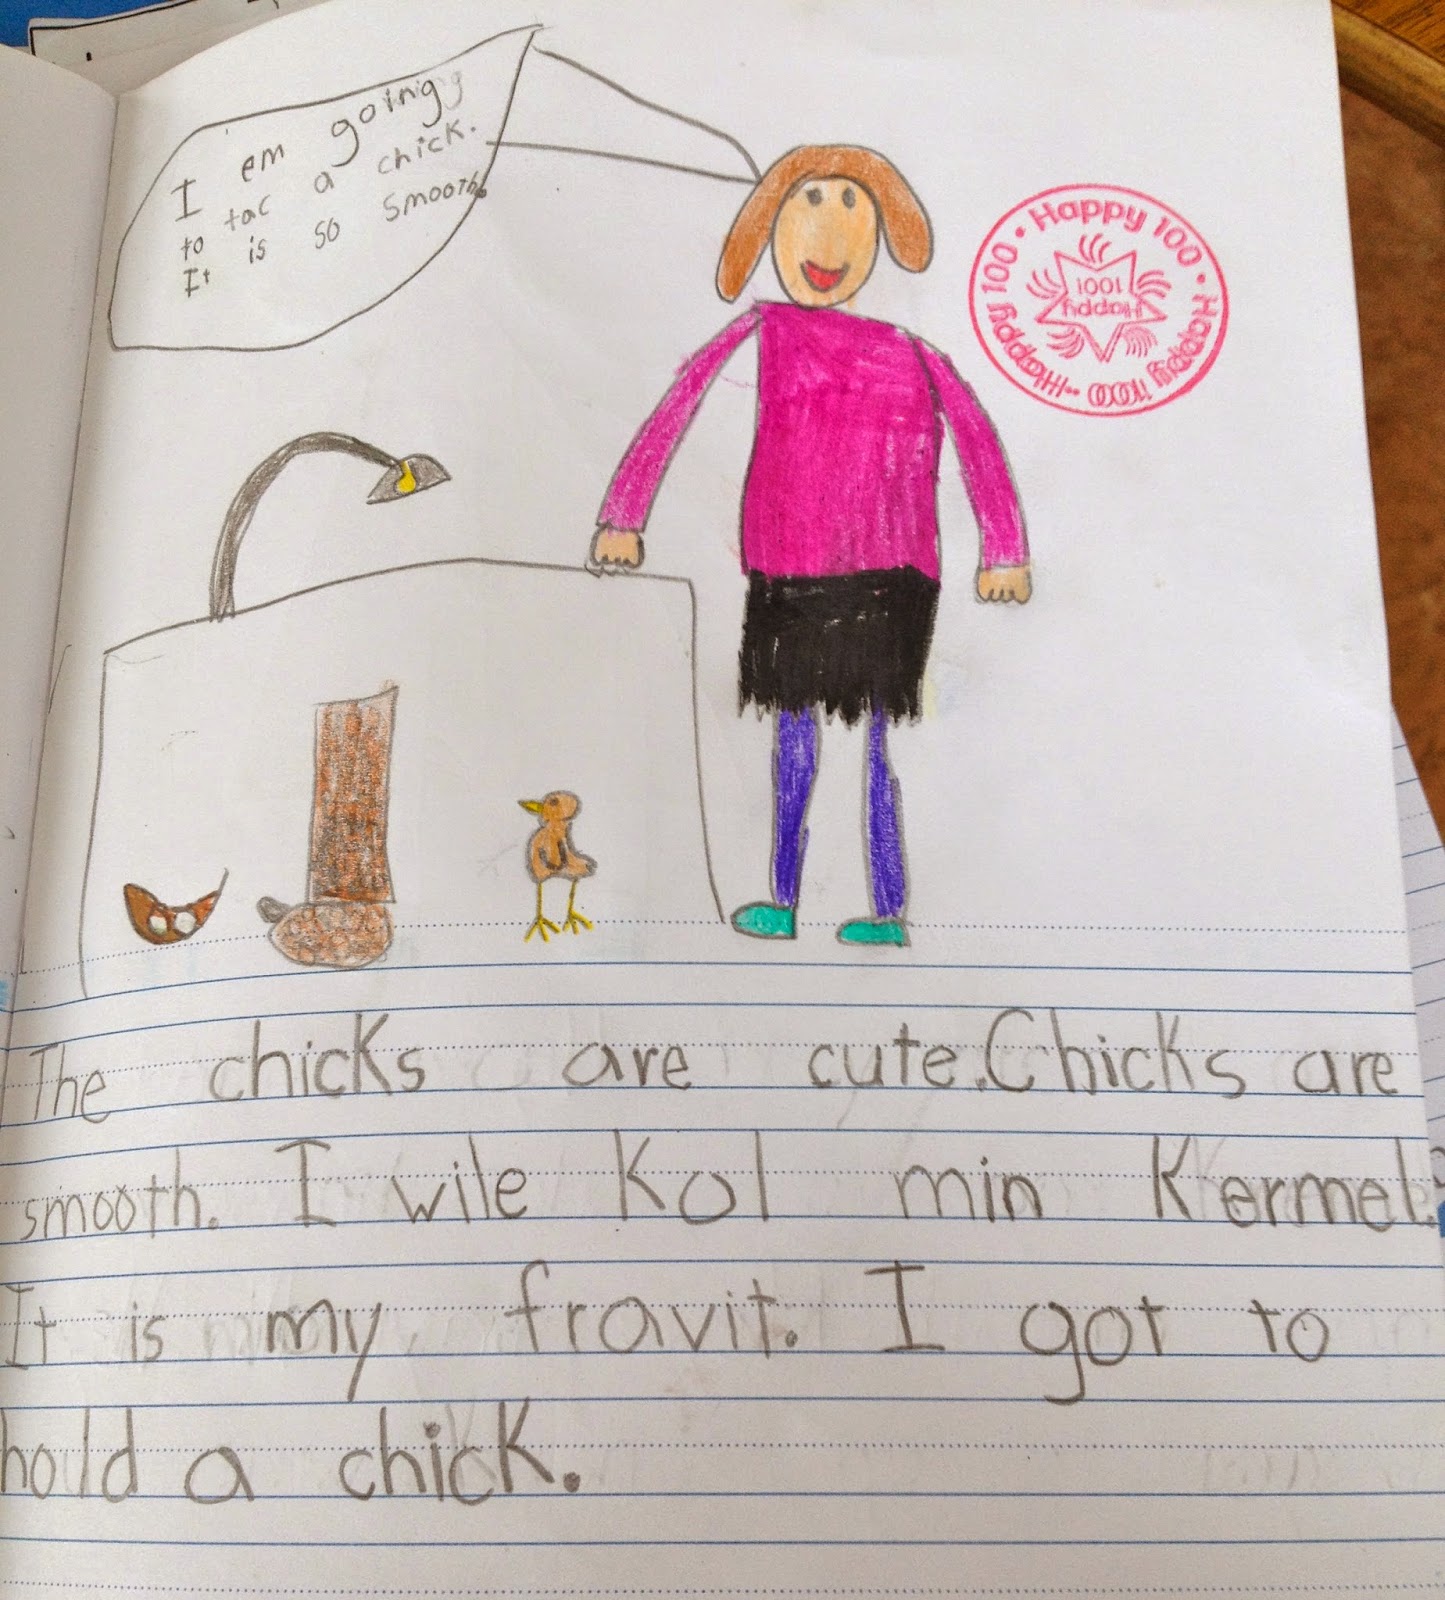 I em goinig
to tac a chick.
It is so smooth.
Happy 100 • Happy 100 • Happy 100 • Happy 100 •
Happy
100!
The chicks are cute. Chicks are
smooth. I wile Kol min Kermel.
It is my fravit. I got to
hold a chick.